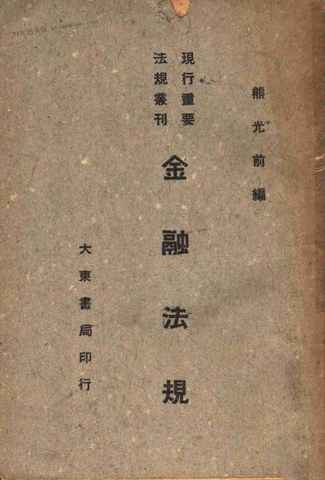 熊光前編
現行重要
法規叢刊
金融法規
大東書局印行